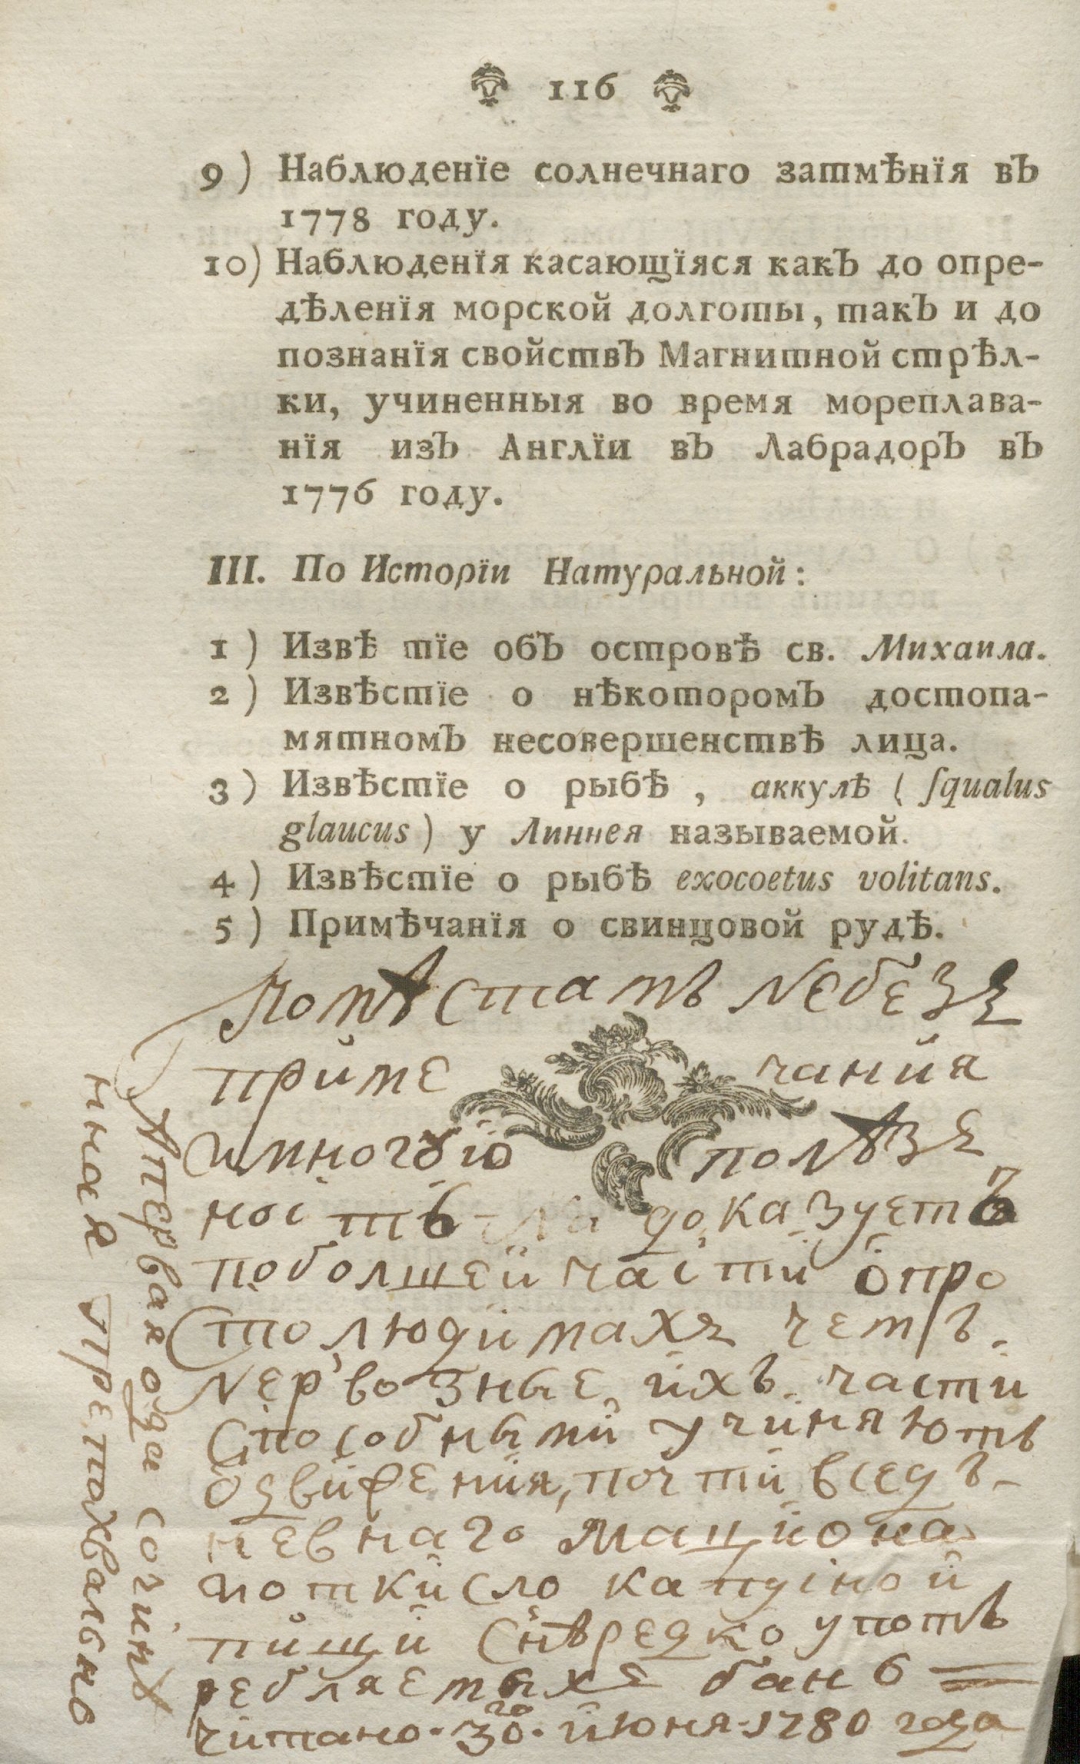 116
9) Наблюденїе солнечнаго затмѣнїя въ
1778 году.
10) Наблюденїя касающїяся какъ до опре-
дѣленїя морской долготы, такъ и до
познанїя свойствъ Магнитной стрѣл-
ки, учиненныя во время мореплава-
нїя изъ Англїи въ Лабрадоръ въ
1776 году.
III. По Исторїи Натуральной:
1) Извѣ тїе объ островѣ св. Михаила.
2) Извѣстїе о нѣкоторомъ достопа-
мятномъ несовершенствѣ лица.
3) Извѣстїе о рыбѣ, аккулѣ (ſqualus
glaucus) у Линнея называемой.
4) Извѣстїе о рыбѣ exocoetus volitans.
5) Примѣчанїя о свинцовой рудѣ.
небезъ
приме чания
полѣзе
доказуетъ
поболшей части опро
столюдимахъ чемъ
нервозные ихъ части
способными учиняютъ
одвижения, почти вседъ
невнаго моциона
пищи
ребляемыхъ бань
читано 30го июня 1780 года
Апервая ода сочинѣ
нная препохвально